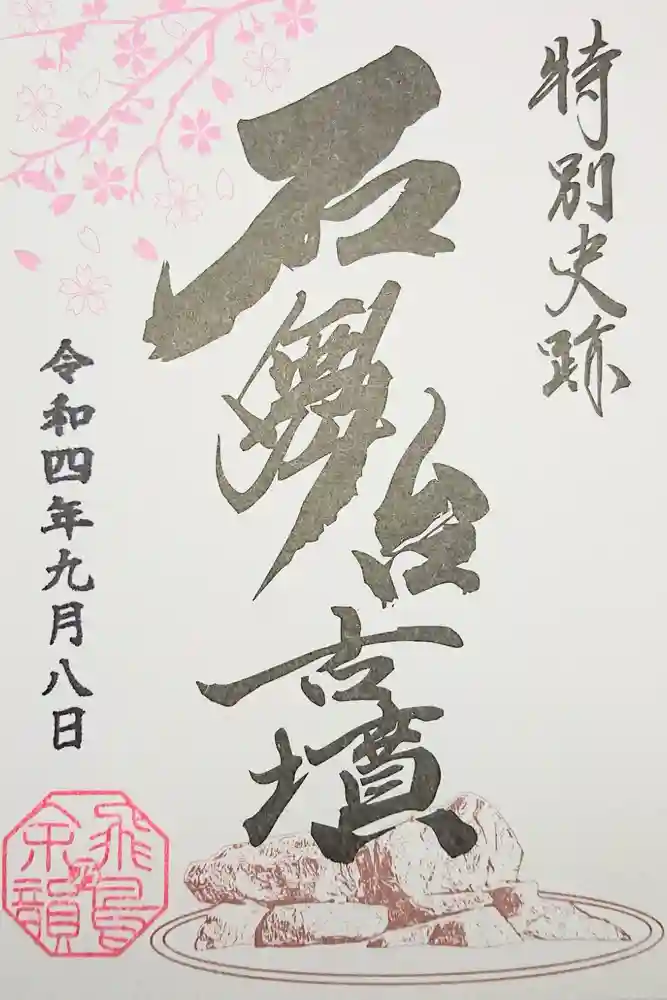 特別史跡
石舞台古墳
令和四年九月八日
飛鳥
余韻